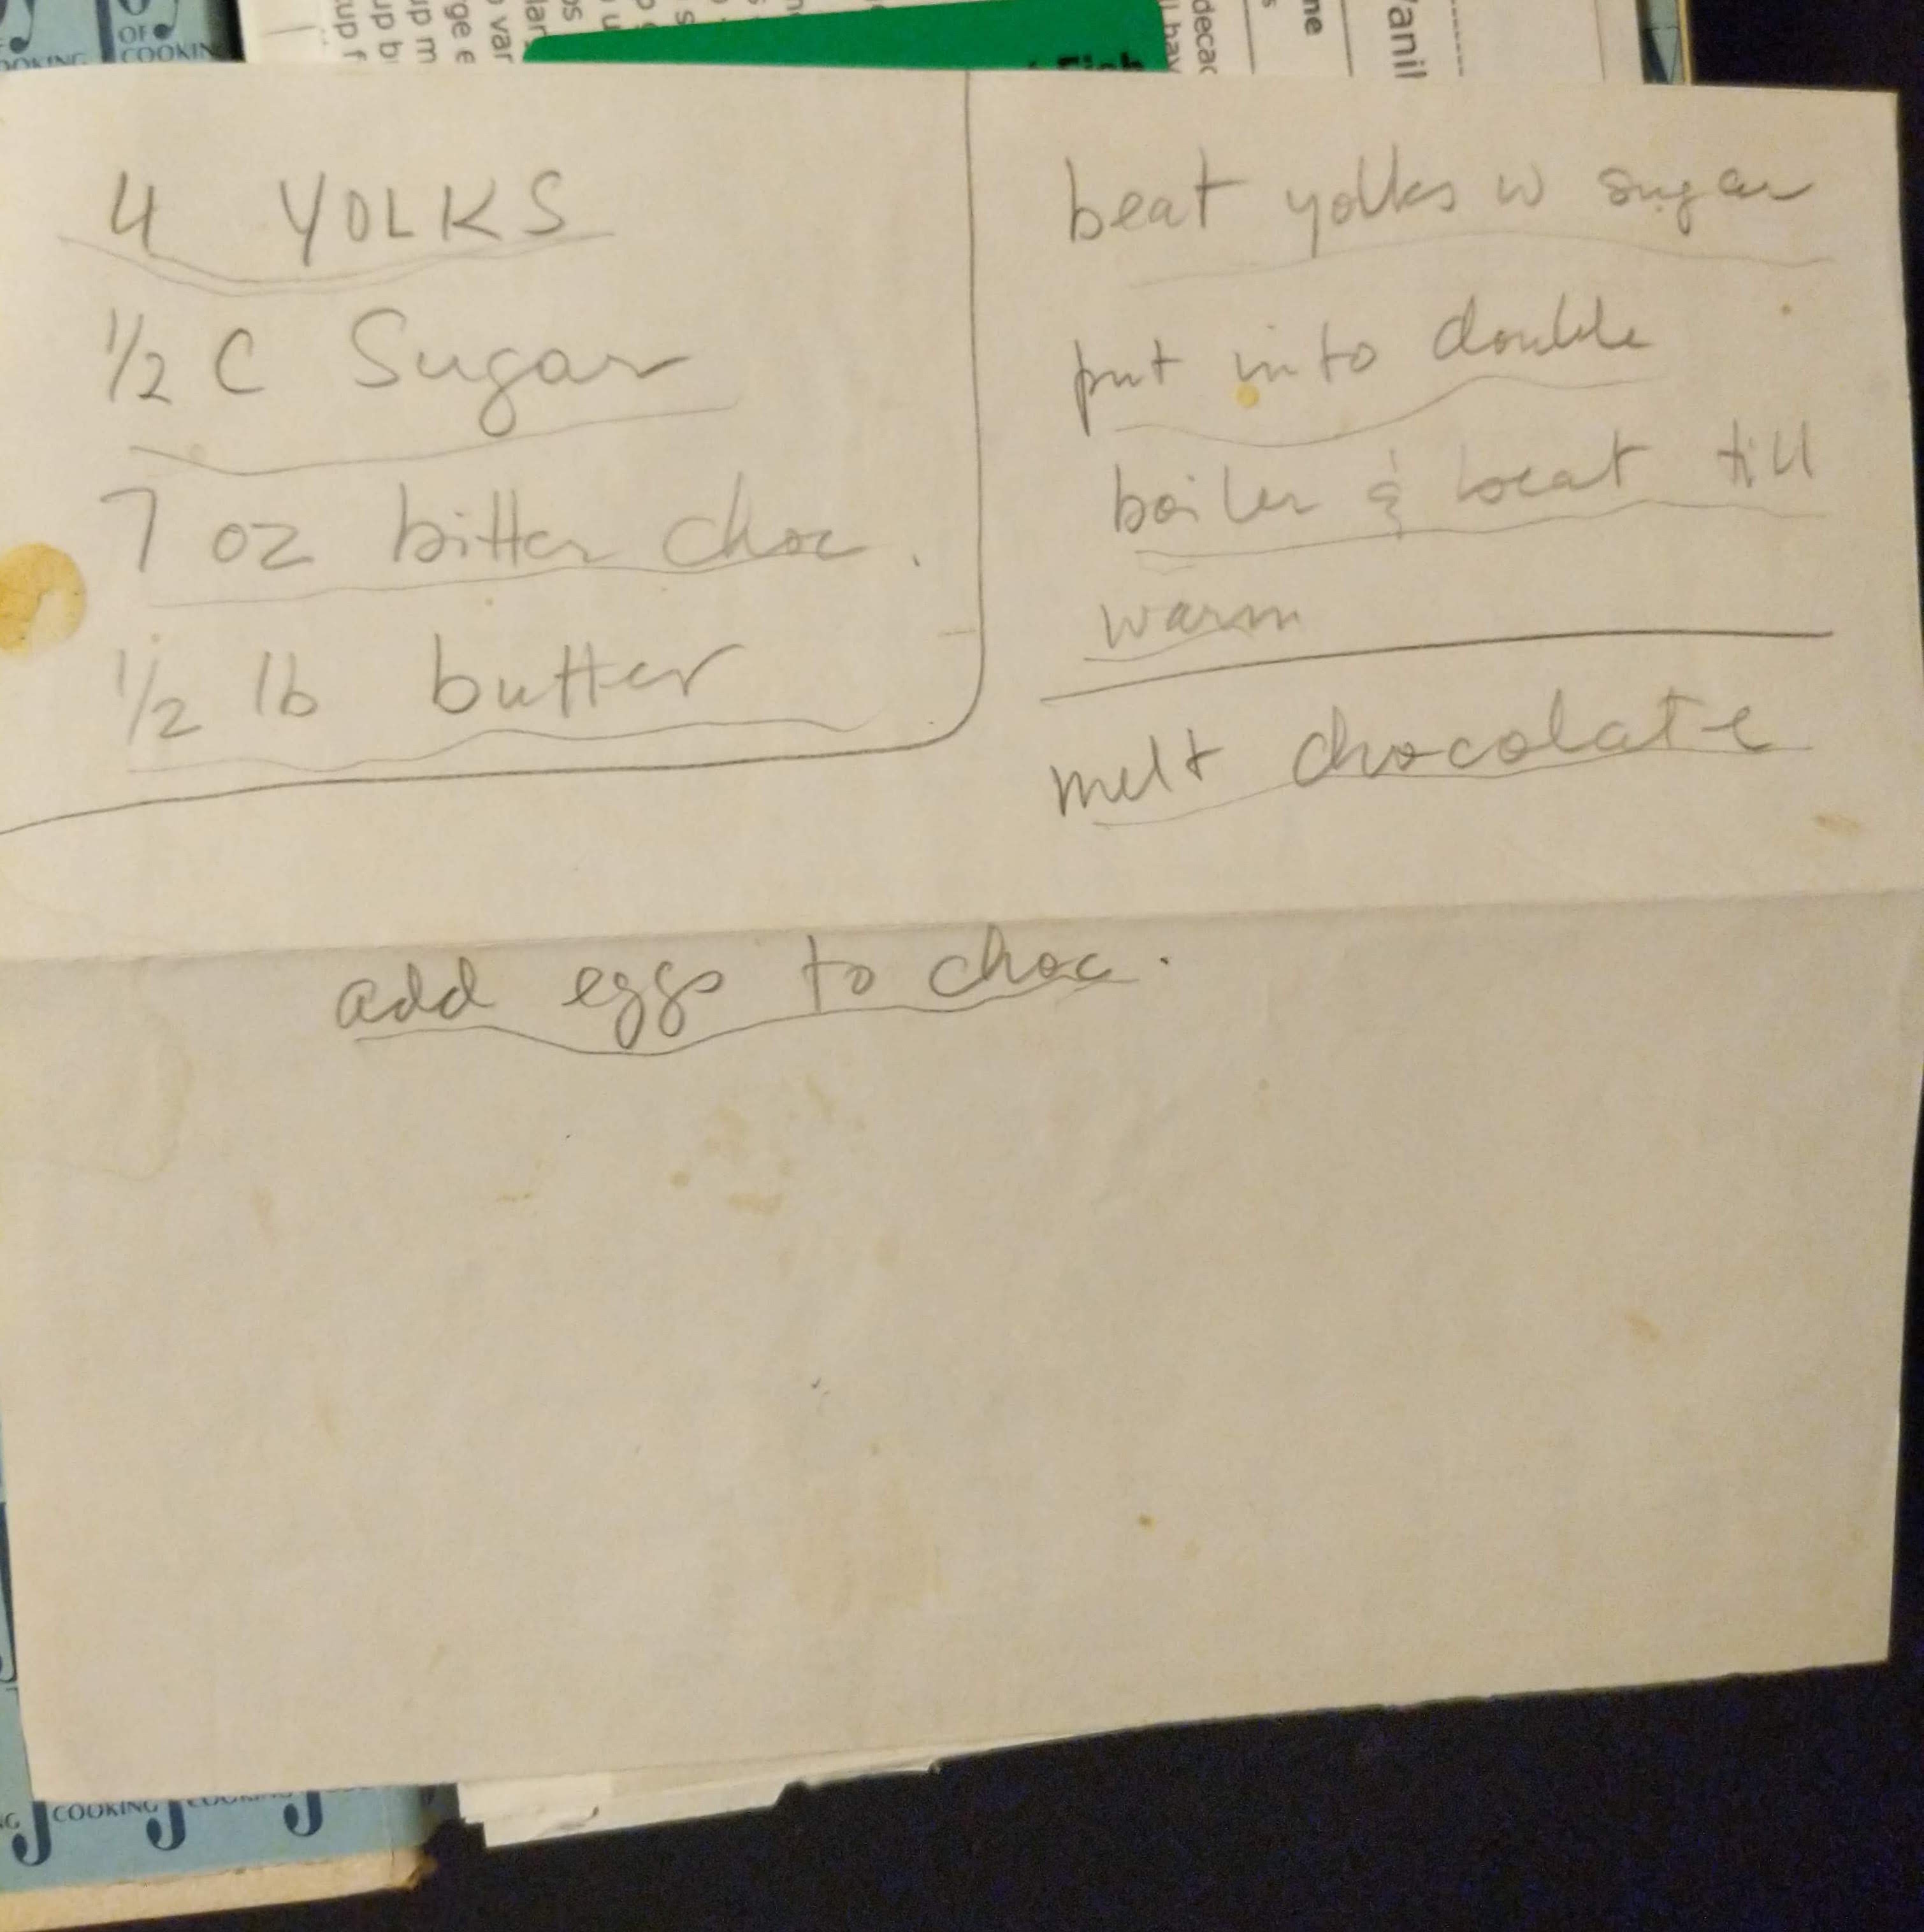 OF
COOKIN
decad
l hav
me
anil
4 YOLKS
1/2 C Sugar
7 oz bitter choc.
1/2 lb butter
beat yolks w sugar
put into double
boiler & beat till
warm
melt chocolate
add eggs to choc.
COOKING